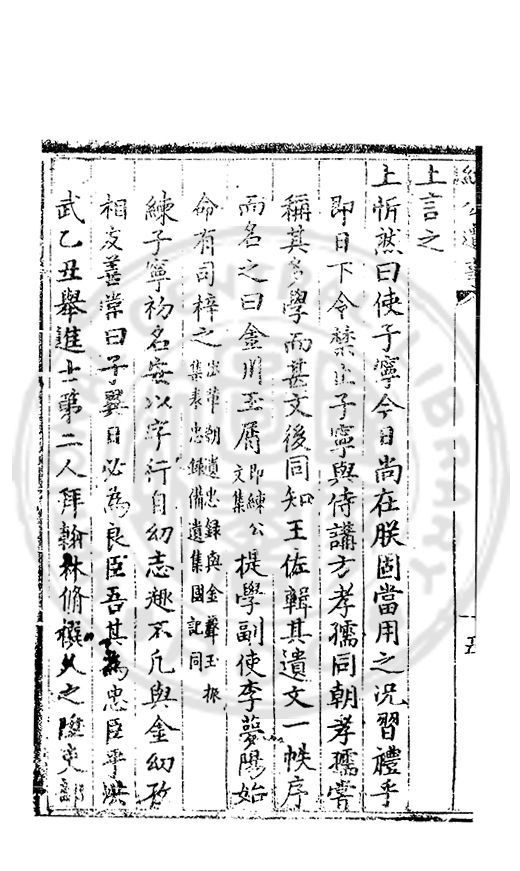 上言之
上忻然曰使子寧今日尚在朕固當用之況習禮乎
即日下令禁止子寧與侍講方孝孺同朝孝孺嘗
稱其多學而甚文後同知王佐輯其遺文一帙序
而名之曰金川玉屑即練公文集提學副使李夢陽始
命有司梓之出革朝遺忠錄與金聲玉振集表忠錄備遺集國記同
練子寧初名安以字行自幼志趣不凡與金幼孜
相友善嘗曰子異日必為良臣吾其為忠臣乎洪
武乙丑舉進士第二人拜翰林脩撰久之陞吏部